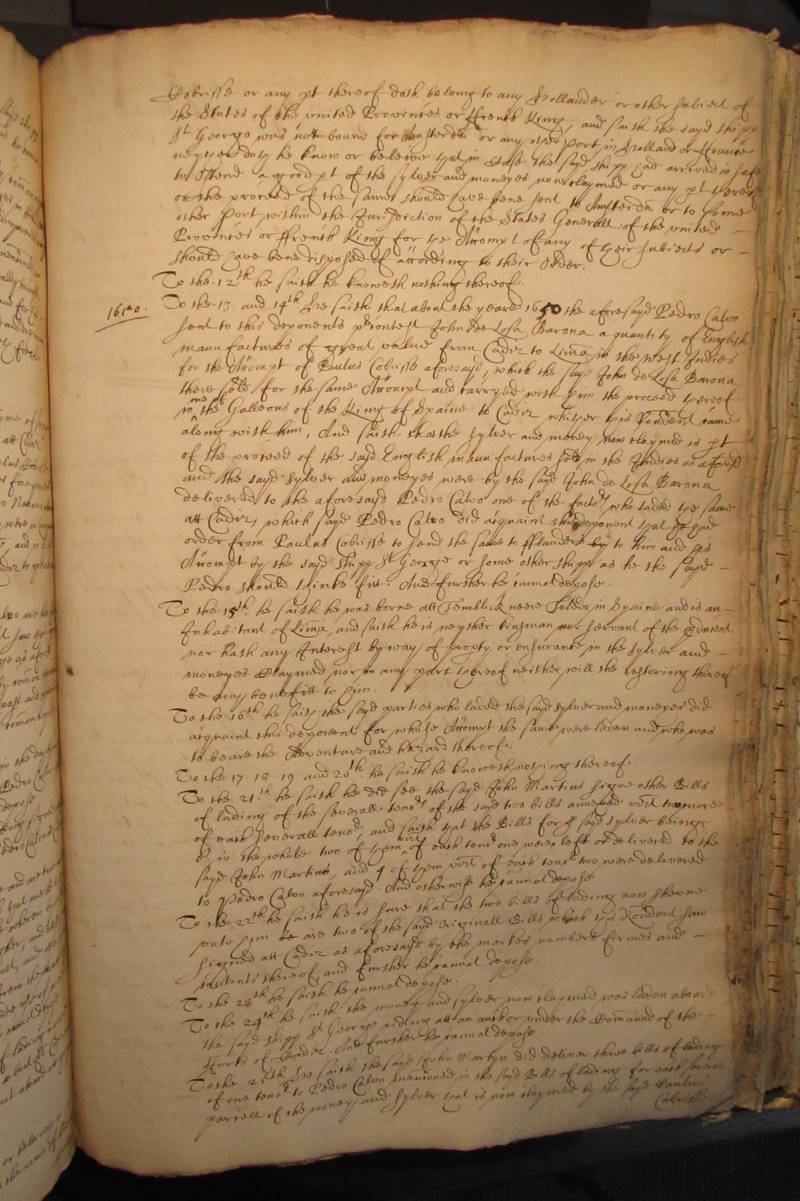 Cobrisse or any pt thereof doth belong to any Hollander or other subiect of
the States of the united Provinces or ffrench King, and saith the sayd shipp
St George was not bound for Amsterdã or any other Port in Holland or ffrance
neyther doth he know or beleive that in Case the sayd shipp had arrived in safe
to Ostend a good pt of the sylver and moneyes now claymed or any pt thereof
or the proceed of the same should have bene sent to Amsterdã or to some
other Port within the Jurisdiction of the States Generall of the united
Provinces or ffrench King for the Accompt of any of their subiects or
should have bene disposed of according to their Order.
To the 12th he saith he knoweth nothing thereof.
1650.
To the 13. and 14th hee saith that about the yeare 1650 the aforesayd Pedro Calvo
sent to this deponents Juan de Losa Barona a quantity of English
manufactures of great value from Cadiz to Lima in the west Indies
for the Accompt of Paulus Cobrisse aforesayd, which the sayd John de Losa Barona
there sold for the same Accompt and carryed with him the proceed thereof
in one of the Galleons of the King of Spaine to Cadiz, whither this Rendent came
along with him, And saith that the sylver and money now claymed is pt
of the proceed of the sayd English manufactures sold in the Indies as aforesd
and the sayd sylver and moneyes were by the sayd John de Losa Barona
delivered to the aforesayd Pedro Calvo one of the factors who laded the same
att Cadiz, which sayd Pedro Calvo did acquaint this deponent that he had
order from Paulus Cobrisse to send the same to fflanders by to him and his
Accompt by the sayd shipp St George or some other shipp as he the sayd
Pedro should thinke fitt. And further he cannot depose.
To the 15th he saith he was borne att neere Toledo in Spaine and is an
Inhabitant of Lima, and saith he is neyther kinsman nor servant of the
nor hath any Interest by way of propty or ensurance in the sylver and
moneyes Claymed nor in any part thereof neither will the restoring thereof
be any benefitt to him.
To the 16th he saith the sayd parties who laded the sayd sylver and moneyes did
acquaint this deponent for whose Accompt the same were laden and who was
to beare the Adventure and hazard thereof.
To the 17. 18. 19. and 20th he saith he knoweth nothing thereof.
To the 21th he saith he did see the sayd John Martins signe other Bills
of lading of the severall tenors of the sayd two bills annexed vizt two more
of each severall tenor, and saith that the Bills for the sayd sylver being
6. in the whole two of them vizt of each tenor one were left or delivered to the
sayd John Martins, and 4 of them vizt of each tenor two were delivered
to Pedro Calvo aforesayd. And otherwise he cannot depose
To the 22th he saith he is sure that the two bills of lading now shewne
unto him are two of the sayd Originall Bills which this Rendent saw
signed att Cadiz as aforesayd by the markes numbers firmes and
contents thereof, and further he cannot depose.
To the 23th he saith he cannot depose.
To the 24th he saith the money and sylver now claymed was laden aboard
the sayd shipp St George riding att an anchor under the Comãnd of the
fforts of And further he cannot depose.
To the 25th hee saith the sayd John Martyn did deliver three bills of lading
of one tenor to Pedro Calvo mencioned in the sayd Bills of lading for each severall
parcell of the money and sylver that is now claymed by the sayd Paulus
Cobrisse